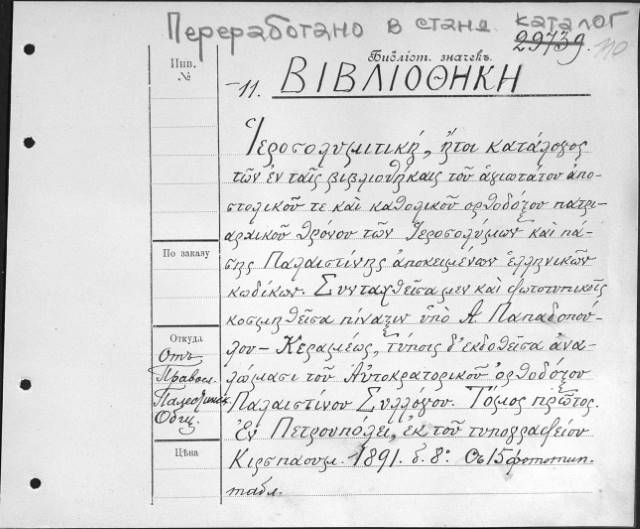 Переработано в станд. каталог
29739.
Инв.
№
Библіот. значекъ.
11. ΒΙΒΛΙΟΘΗΚΗ
Ἱεροσολυμιτικὴ, ἤτοι κατάλογος
τῶν ἐν ταῖς βιβλιοθήκαις τοῦ ἁγιωτάτου ἀπο-
στολικοῦ τε καὶ καθολικοῦ ὀρθοδόξου πατρι-
αρχικοῦ θρόνου τῶν Ἱεροσολύμων καὶ πά-
По заказу
σης Παλαιστίνης ἀποκειμένων ἑλληνικῶν
κωδίκων. Συνταχθεῖσα μὲν καὶ φωτοτυπικοῖς
κοσμηθεῖσα πίναξιν ὑπὸ Α. Παπαδοπού-
Откуда
λου-Κεραμέως, τύποις δ' ἐκδοθεῖσα ἀνα-
Отъ
λώμασι τοῦ Αὐτοκρατορικοῦ ὀρθοδόξου
Правосл.
Палестинск.
Παλαιστίνου Συλλόγου. Τόμος πρῶτος.
Общ.
Ἐν Πετρουπόλει, ἐκ τοῦ τυπογραφείου
Цѣна
Κιρσπάουμ. 1891. δ. 8º. Съ 15 фототип.
табл.